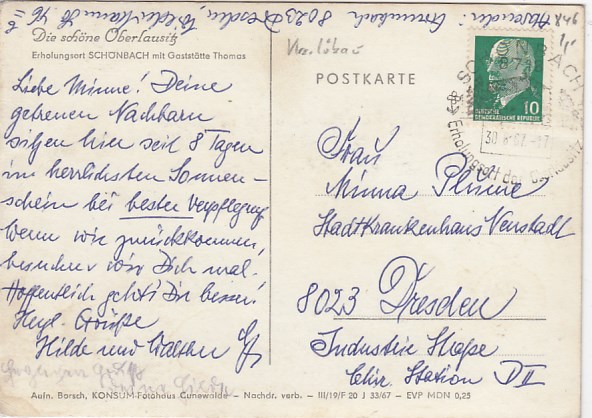 Absender: Grumbach 8023 Dresden,
Die schöne Oberlausitz
Erholungsort SCHÖNBACH mit Gaststätte Thomas
Krs. Löbau
POSTKARTE
DEUTSCHE DEMOKRATISCHE REPUBLIK
10
30.8.67
Erholungsort der Oberlausitz
Liebe Minne! Deine
getreuen Nachbarn
sitzen hier seit 8 Tagen
im herrlichsten Sonnen-
schein bei bester Verpflegung
Wenn wir zurückkommen,
besuchen wir Dich mal.
Hoffentlich geht's Dir besser!
Herzl. Grüße
Hilde und Walther
Frau
Minna Plüme
Stadtkrankenhaus Neustadt
8023 Dresden
Industrie Straße
Chir. Station D II
Aufn. Borsch, KONSUM-Fotohaus Cunewalde - Nachdr. verb. - III/19/F 20 J 33/67 - EVP MDN 0,25